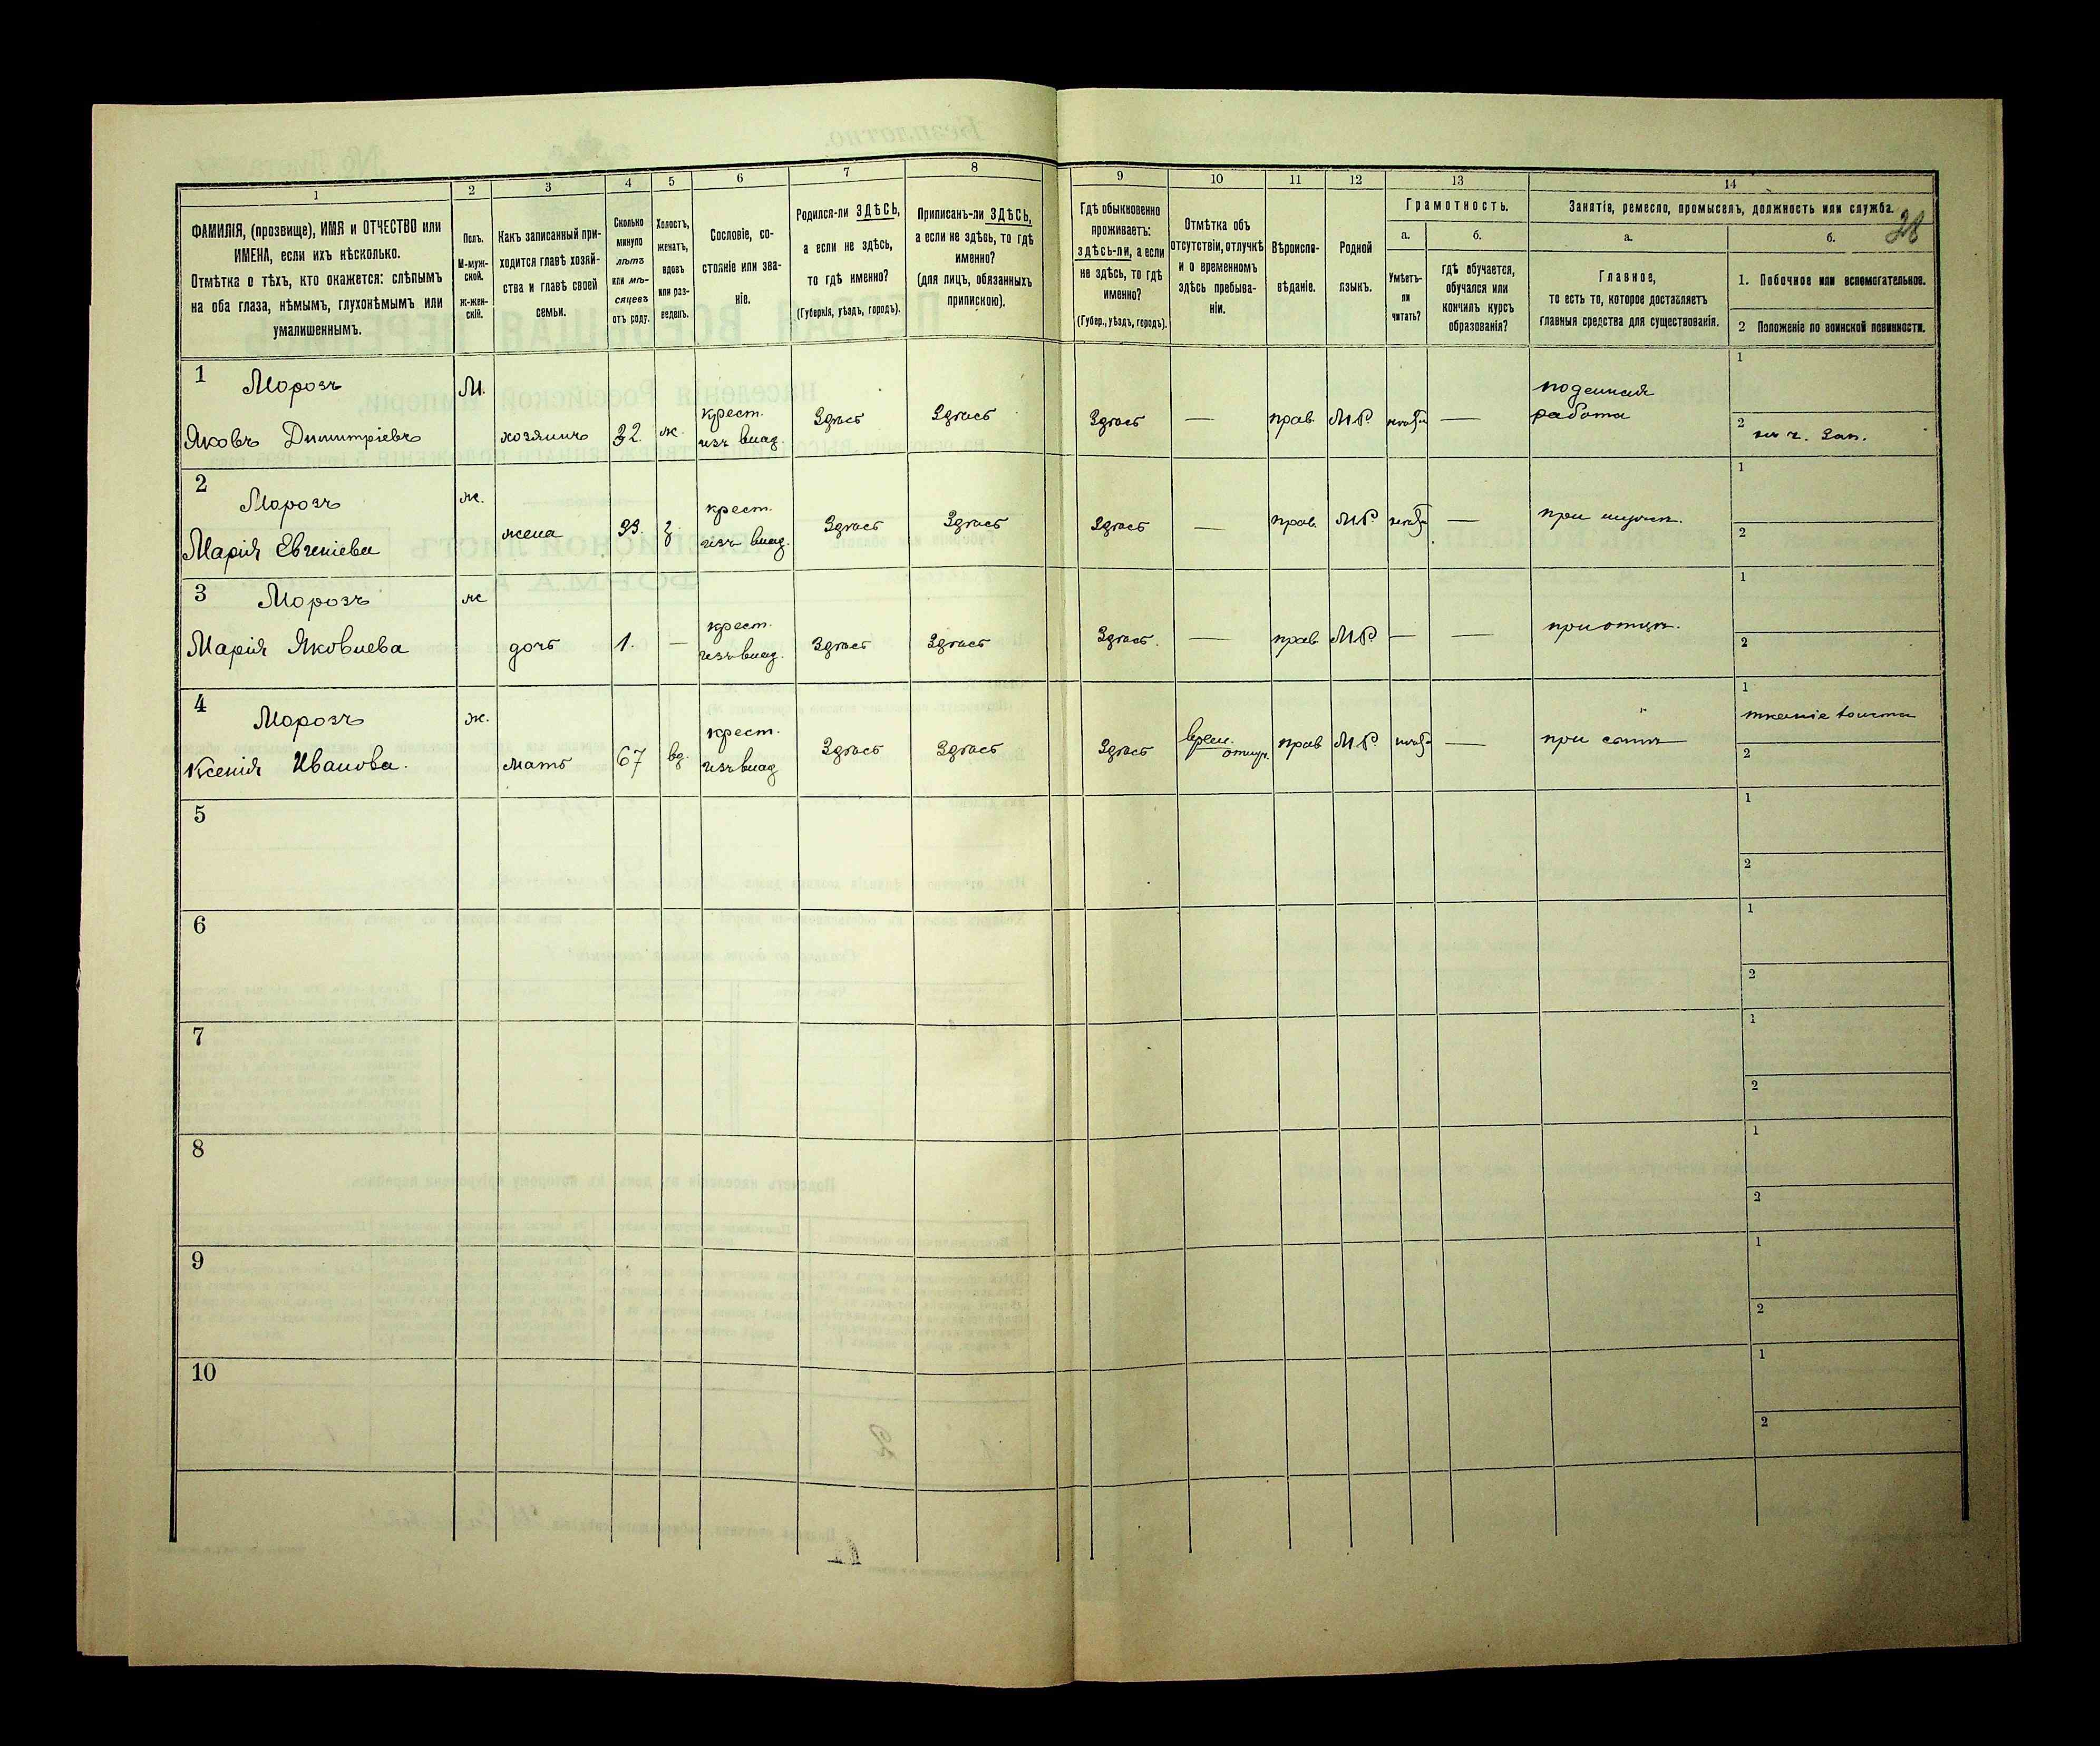 1 2 3 4 5 6 7 8 9 10 11 12 13 14
28
ФАМИЛІЯ, (прозвище), ИМЯ и ОТЧЕСТВО или
ИМЕНА, если ихъ нѣсколько.
Отмѣтка о тѣхъ, кто окажется: слѣпымъ
на оба глаза, нѣмымъ, глухонѣмымъ или
умалишеннымъ.
Полъ.
М-муж-
ской.
Ж-жен-
скій.
Какъ записанный при-
ходится главѣ хозяй-
ства и главѣ своей
семьи.
Сколько
минуло
лѣтъ
или мѣ-
сяцевъ
отъ роду.
Холостъ,
женатъ,
вдовъ
или раз-
веденъ.
Сословіе, со-
стояніе или зва-
ніе.
Родился-ли ЗДѢСЬ,
а если не здѣсь,
то гдѣ именно?
(Губернія, уѣздъ, городъ).
Приписанъ-ли ЗДѢСЬ,
а если не здѣсь, то гдѣ
именно?
(для лицъ, обязанныхъ
припискою).
Гдѣ обыкновенно
проживаетъ:
здѣсь-ли, а если
не здѣсь, то гдѣ
именно?
(Губер., уѣздъ, городъ).
Отмѣтка объ
отсутствіи, отлучкѣ
и о временномъ
здѣсь пребыва-
ніи.
Вѣроиспо-
вѣданіе.
Родной
языкъ.
Грамотность.
а.
Умѣетъ-
ли
читать?
б.
гдѣ обучается,
обучался или
кончилъ курсъ
образованія?
Занятія, ремесло, промыселъ, должность или служба.
а.
Главное,
то есть то, которое доставляетъ
главныя средства для существованія.
б.
1. Побочное или вспомогательное.
2 Положеніе по воинской повинности.
1 Морозъ
Яковъ Димитріевъ
М.
хозяинъ
32.
ж.
крест.
изъ влад.
Здѣсь
Здѣсь
Здѣсь
—
прав.
М.Р.
—
поденная
работа
1
2
2 Морозъ
Марія Евгеніева
ж.
жена
33.
з.
крест.
изъ влад.
Здѣсь
Здѣсь
Здѣсь
—
прав.
М.Р.
—
при мужѣ.
1
2
3 Морозъ
Марія Яковлева
ж
дочь
1.
—
крест.
изъ влад.
Здѣсь
Здѣсь
Здѣсь.
—
прав
М.Р.
—
—
при отцѣ.
1
2
4 Морозъ
Ксенія Иванова.
ж.
мать
67
вд.
крест.
изъ влад
Здѣсь
Здѣсь
Здѣсь
врем.
отлуч.
прав
М.Р.
—
при сынѣ
1
тканіе холста
2
5
1
2
6
1
2
7
1
2
8
1
2
9
1
2
10
1
2